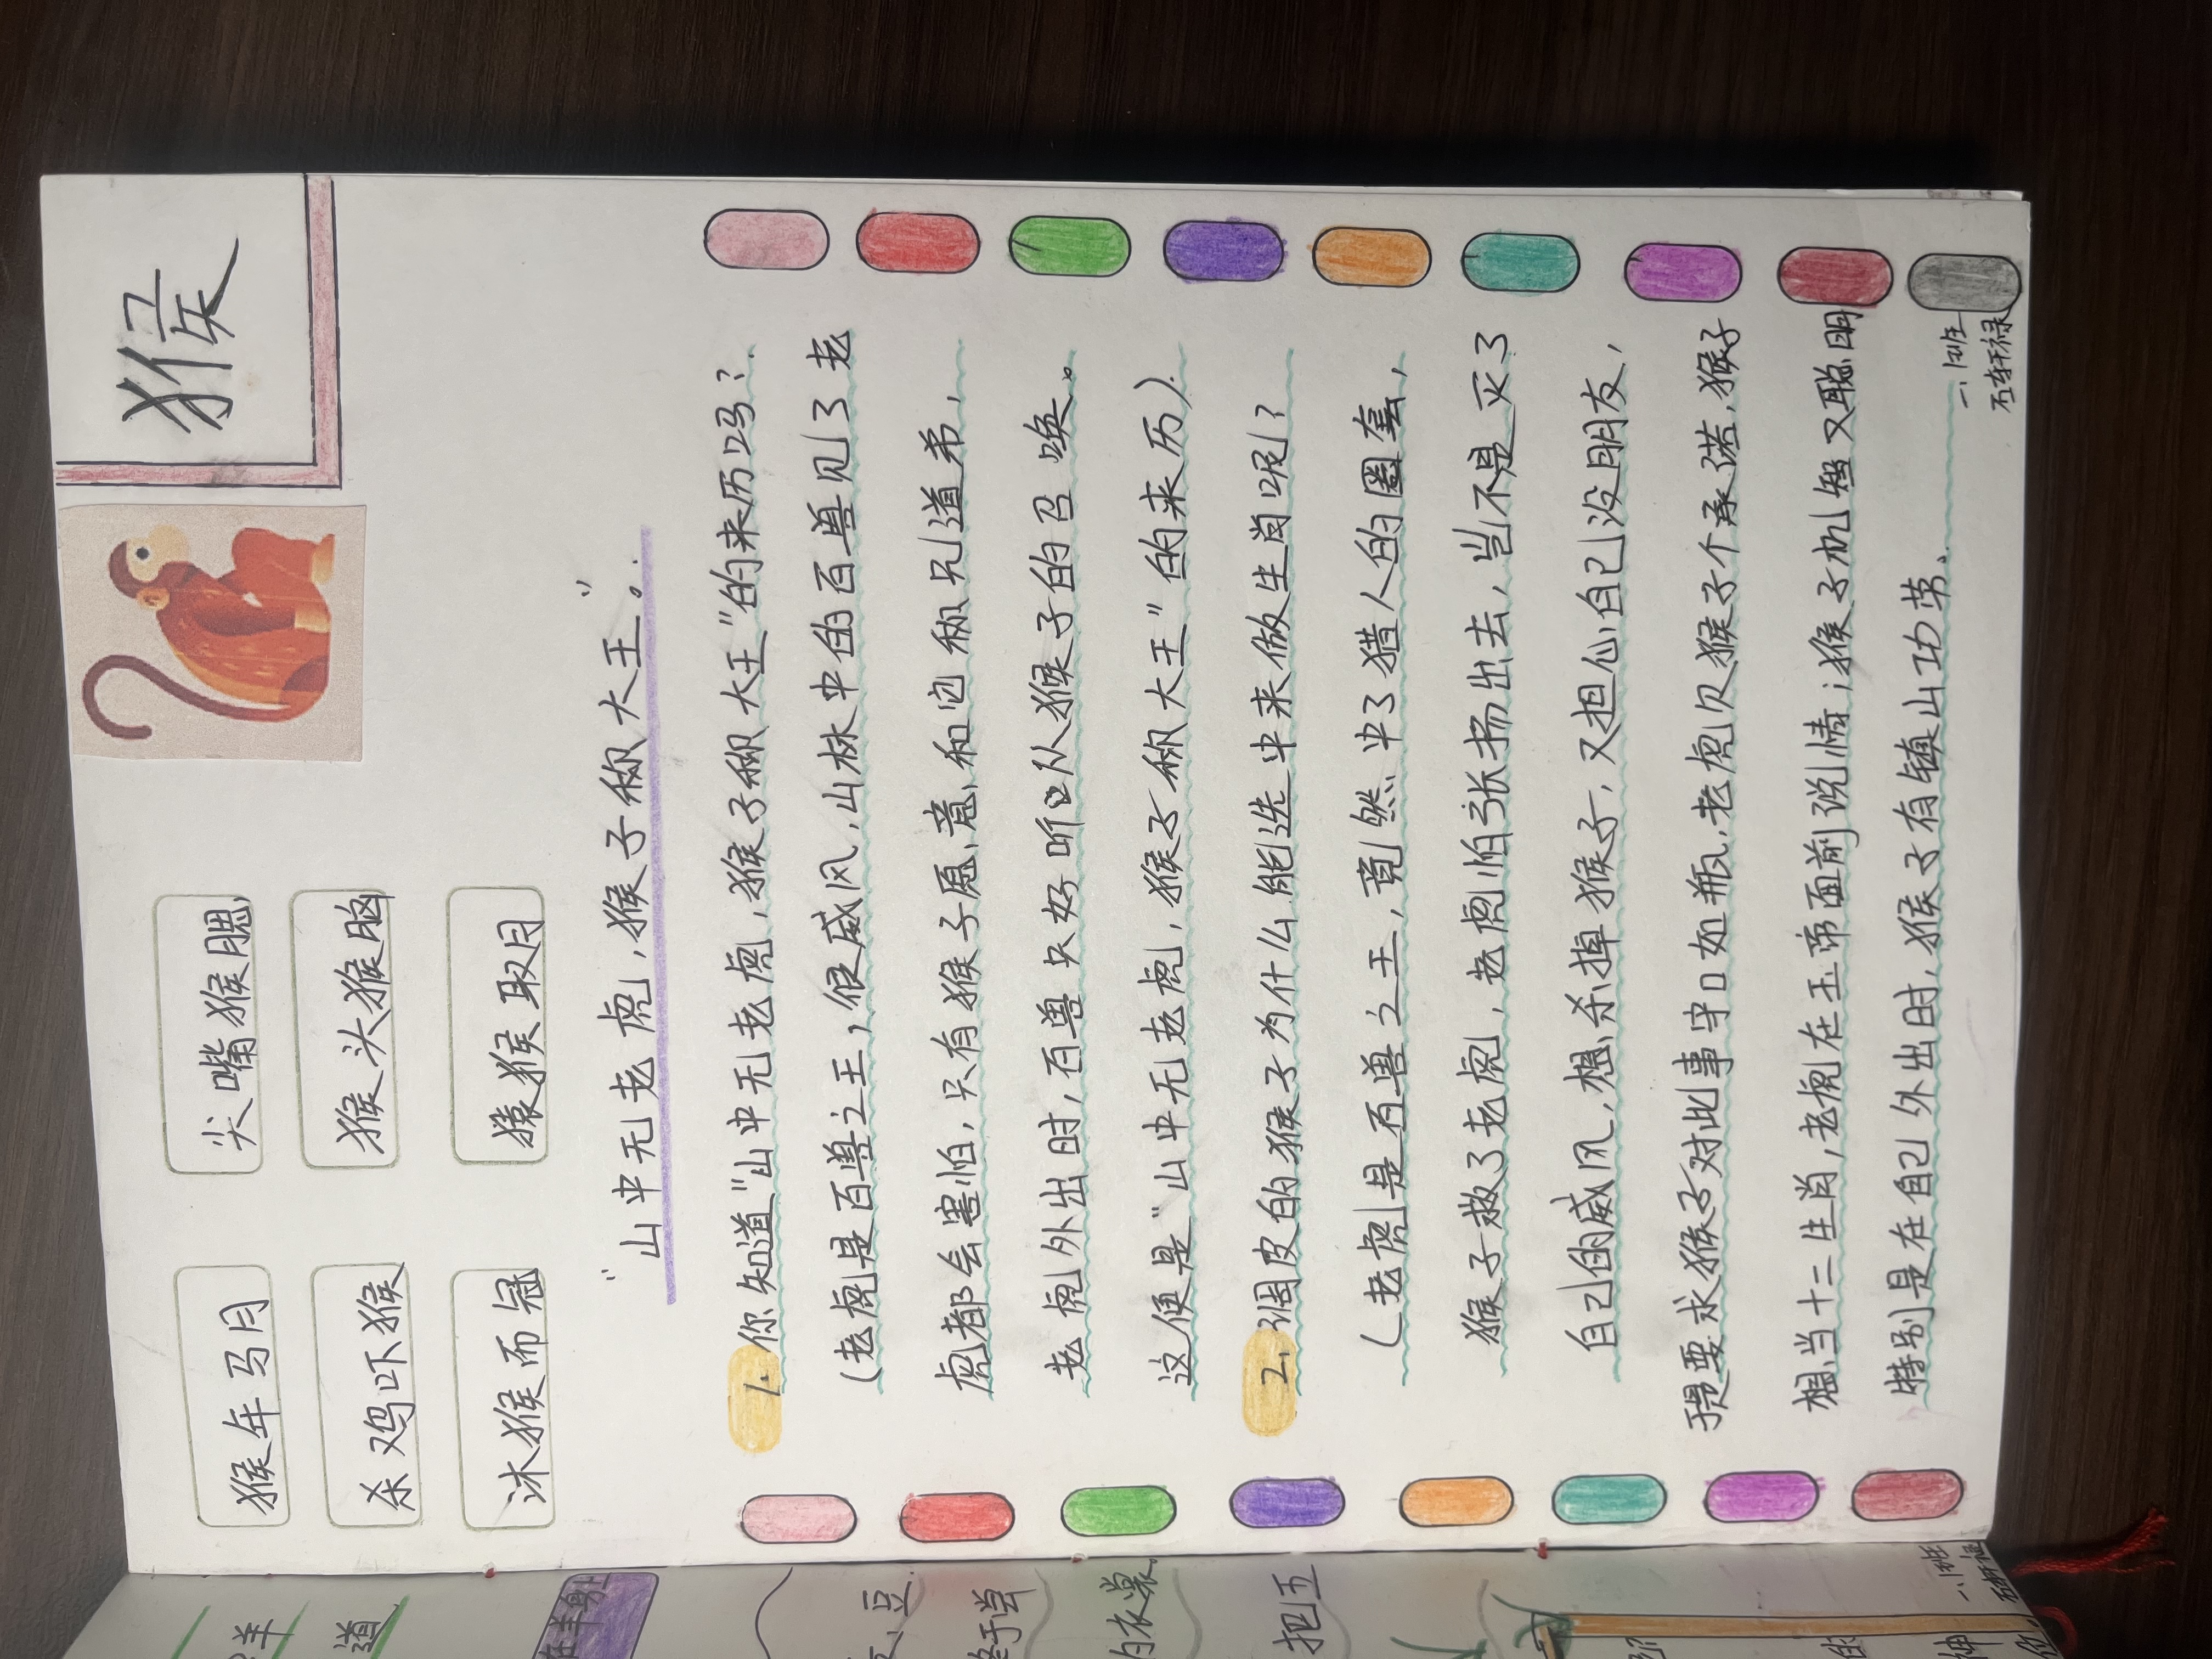 猴
猴年马月
尖嘴猴腮
杀鸡吓猴
猴头猴脑
沐猴而冠
猿猴取月
"山中无老虎,猴子称大王。"
1. 你知道"山中无老虎,猴子称大王"的来历吗?
(老虎是百兽之王,很威风,山林中的百兽见了老
虎都会害怕,只有猴子愿意和它称兄道弟,
老虎外出时,百兽只好听从猴子的召唤。
这便是"山中无老虎,猴子称大王"的来历).
2. 调皮的猴子为什么能选中来做生肖呢?
(老虎是百兽之王,竟然中了猎人的圈套,
猴子救了老虎,老虎怕张扬出去,岂不是灭了
自己的威风,想杀掉猴子,又担心自己没朋友,
提要求猴子对此事守口如瓶,老虎欠猴子个承诺,猴子
想当十二生肖,老虎在玉帝面前说情;猴子机智又聪明
特别是在自己外出时,猴子有镇山功劳.
一、1班
羊
道
在羊身上
豆
终于尝
的衣裳
把五
的
神
一、1班